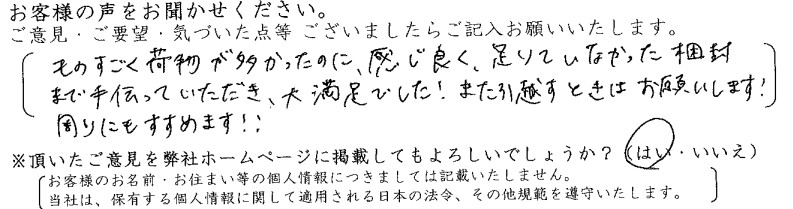 お客様の声をお聞かせください。
ご意見・ご要望・気づいた点等 ございましたらご記入お願いいたします。
ものすごく荷物が多かったのに、感じ良く、足りていなかった梱封
まで手伝っていただき、大満足でした！また引越すときはお願いします！
周りにもすすめます！！
※頂いたご意見を弊社ホームページに掲載してもよろしいでしょうか？（はい・いいえ）
お客様のお名前・お住まい等の個人情報につきましては記載いたしません。
当社は、保有する個人情報に関して適用される日本の法令、その他規範を遵守いたします。